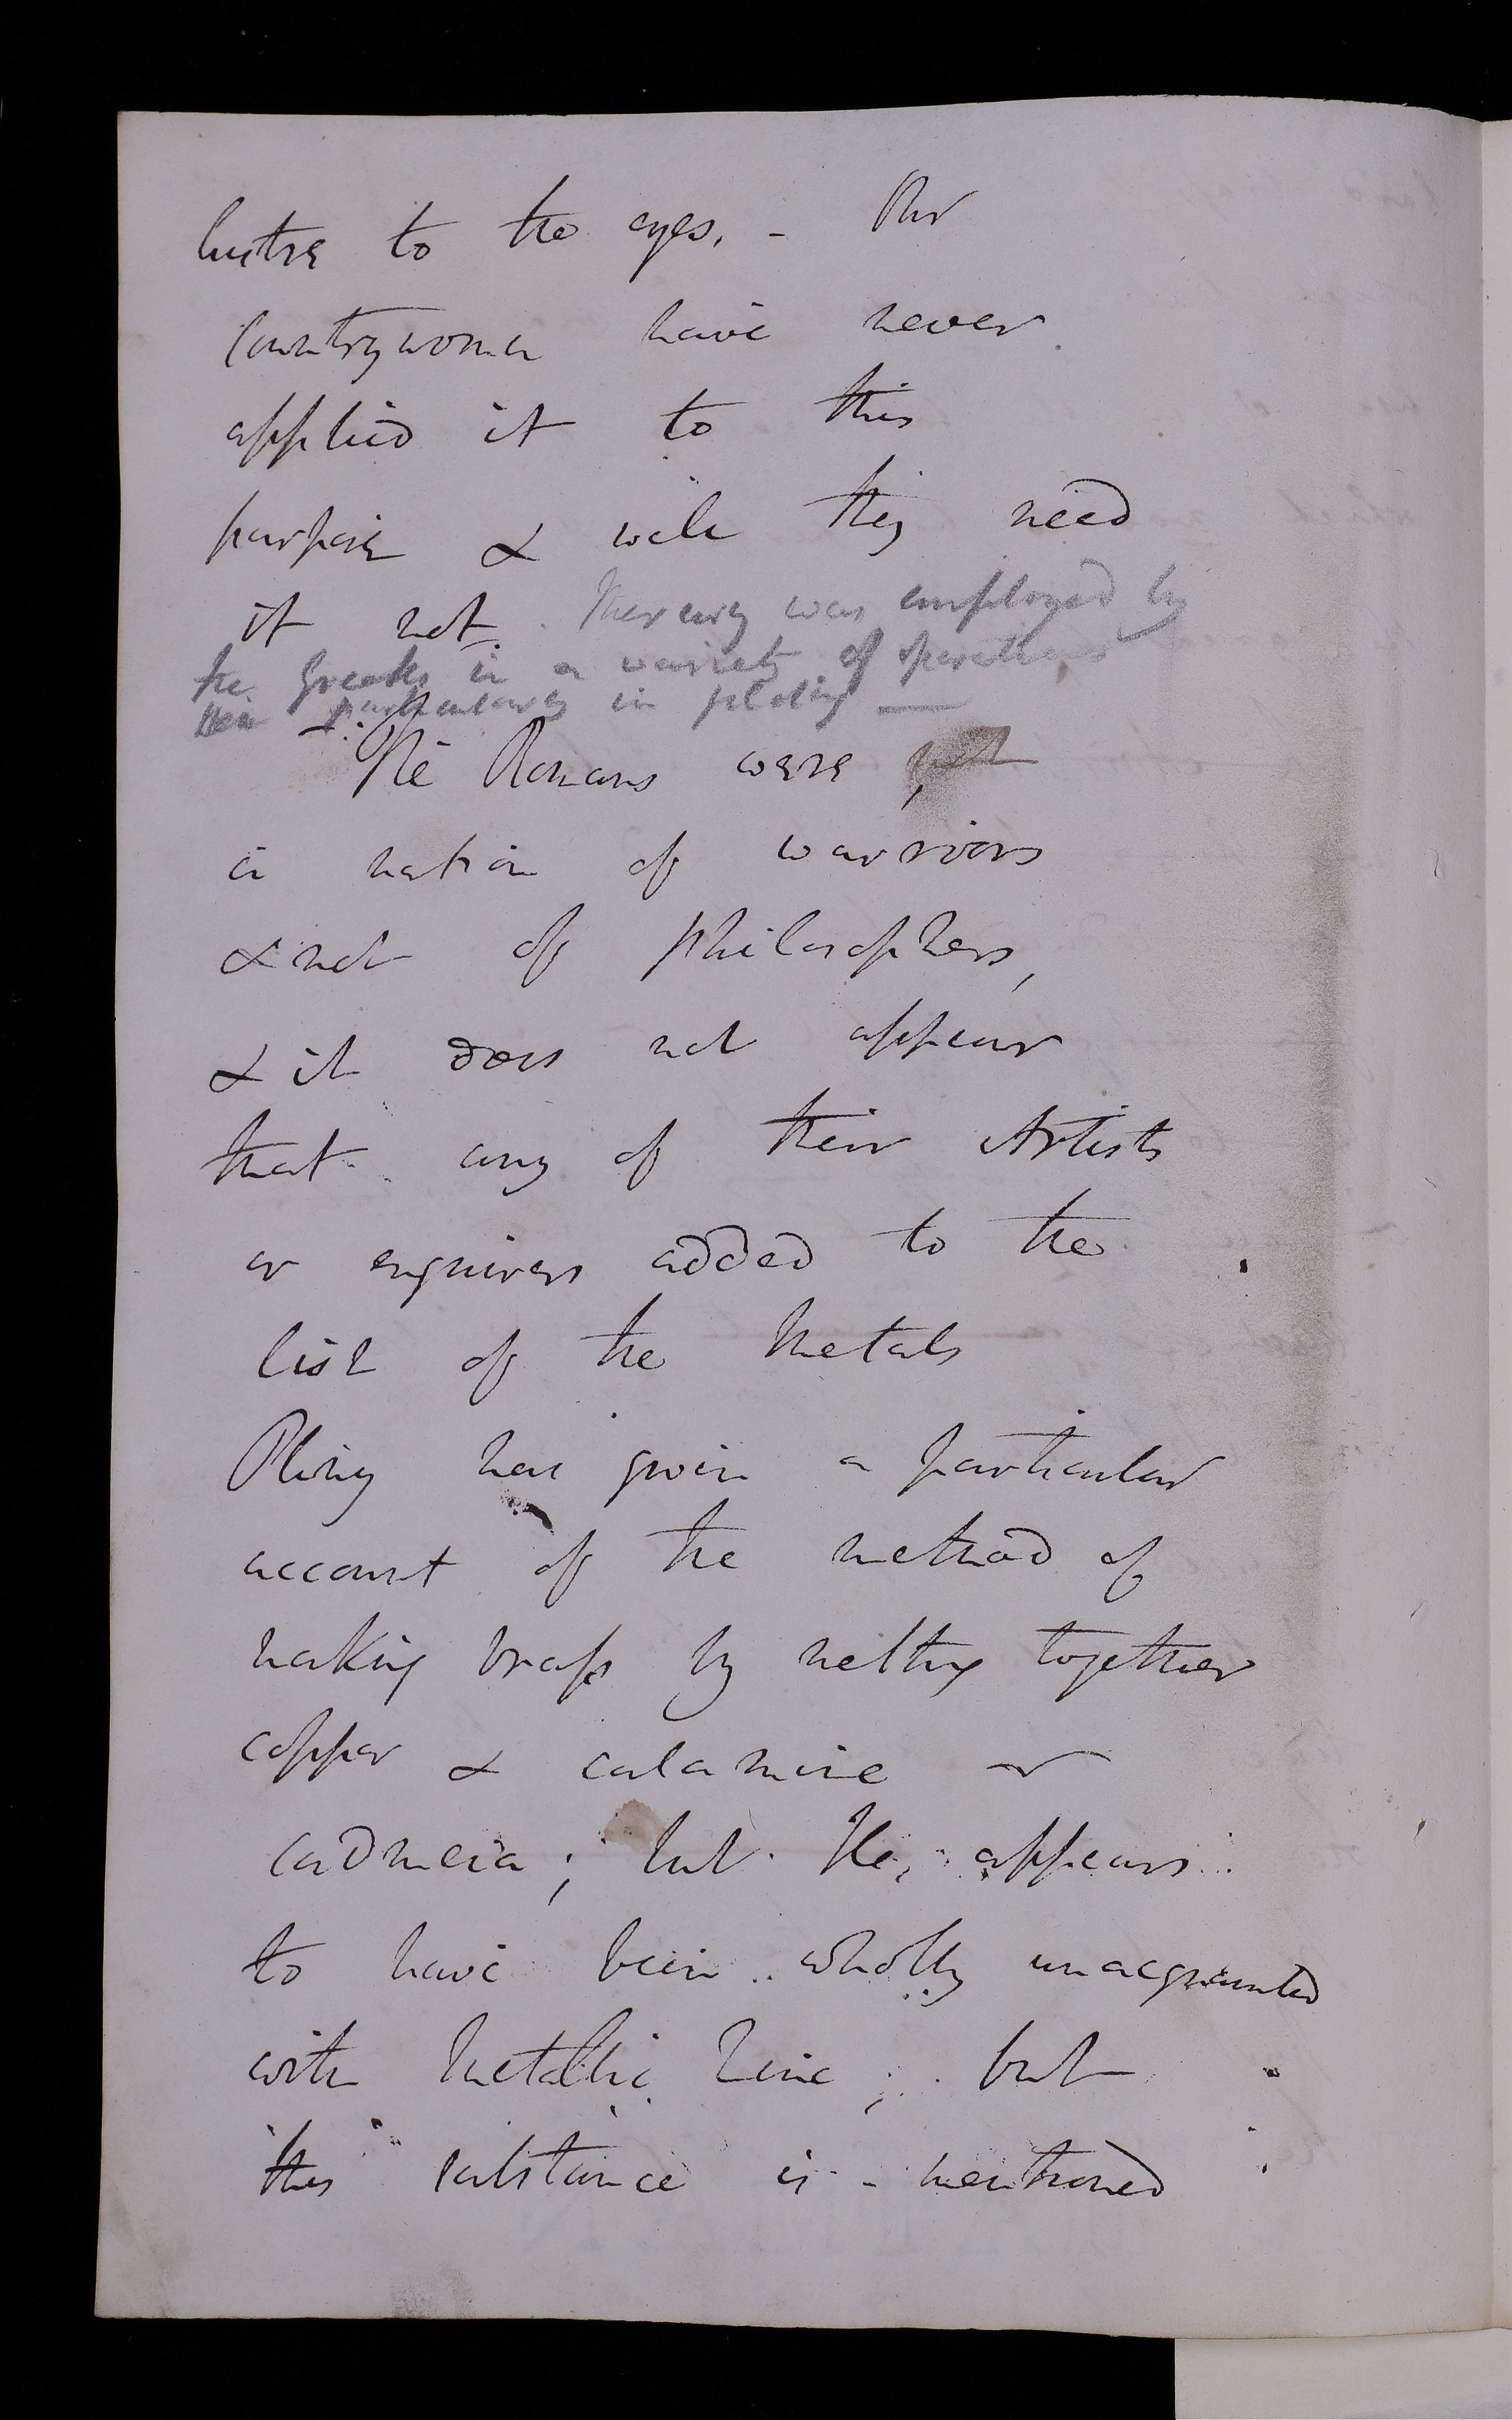 lustre to the eyes. - Our
Countrywomen have never
applied it to this
purpose & well they need
it not. Mercury was employed by
the Greeks in a variety of operations
particularly in plating —
The Romans were
a nation of warriors
& not of philosophers,
& it does not appear
that any of their Artists
or enquirers added to the
list of the Metals
Pliny has given a particular
account of the method of
making brass by melting together
copper & calamine or
cadmeia; but He, appears
to have been wholly unacquainted
with Metallic Zinc; but
this substance is - mentioned